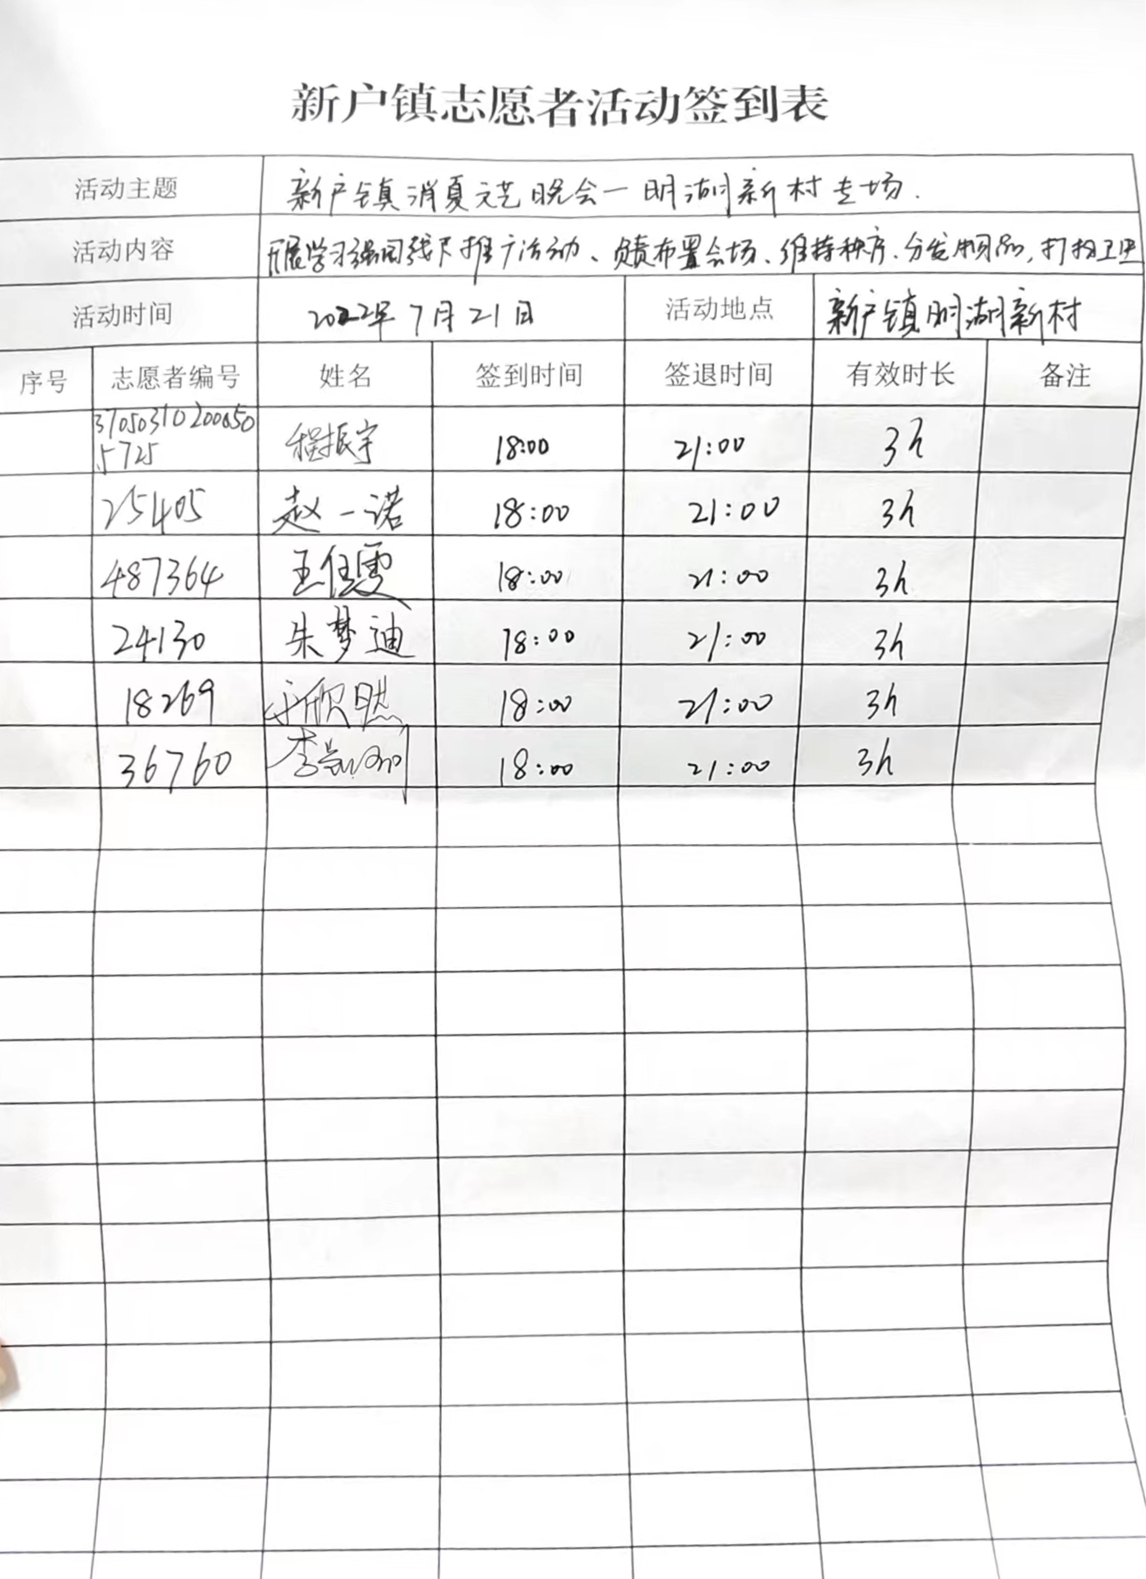 新户镇志愿者活动签到表
活动主题 新户镇消夏文艺晚会一明湖新村专场.
活动内容 开展学习强国线下推广活动、负责布置会场、维持秩序、分发物品,打扫卫生
活动时间 2022年7月21日 活动地点 新户镇明湖新村
序号 志愿者编号 姓名 签到时间 签退时间 有效时长 备注
3705031020050
5725 程振宇 18:00 21:00 3h
25405 赵一诺 18:00 21:00 3h
487364 王任雯 18:00 21:00 3h
24130 朱梦迪 18:00 21:00 3h
18269 欣然 18:00 21:00 3h
36760 李 18:00 21:00 3h